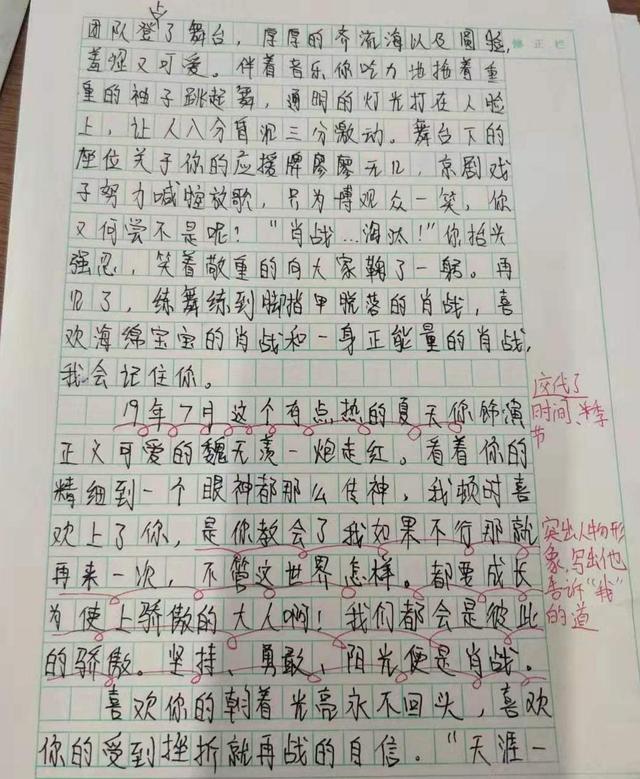 上
团队登了舞台，厚厚的齐流海以及圆脸，
修正栏
羞涩又可爱。伴着音乐你吃力地拖着重
重的袖子跳起舞，通明的灯光打在人脸
上，让人八分自沉三分激动。舞台下的
座位关于你的应援牌廖廖无几，京剧戏
子努力喊嗓放歌，只为博观众一笑，你
又何尝不是呢！“肖战...淘汰！”你抬头
强忍，笑着敬重的向大家鞠了一躬。再
见了，练舞练到脚指甲脱落的肖战，喜
欢海绵宝宝的肖战和一身正能量的肖战，
我会记住你。
19年7月这个有点热的夏天你饰演
交代了
时间、季
节
正义可爱的魏无羡一炮走红。看着你的
精细到一个眼神都那么传神，我顿时喜
欢上了你，是你教会了我如果不行那就
再来一次，不管这世界怎样。都要成长
为使上骄傲的大人啊！我们都会是彼此
的骄傲。坚持、勇敢、阳光便是肖战。
突出人物形
象，写出他
告诉“我”
的道
喜欢你的朝着光亮永不回头，喜欢
你的受到挫折就再战的自信。“天涯一